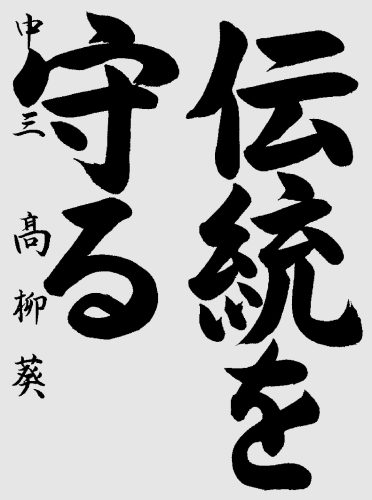 伝統を
守る
中三 高柳葵